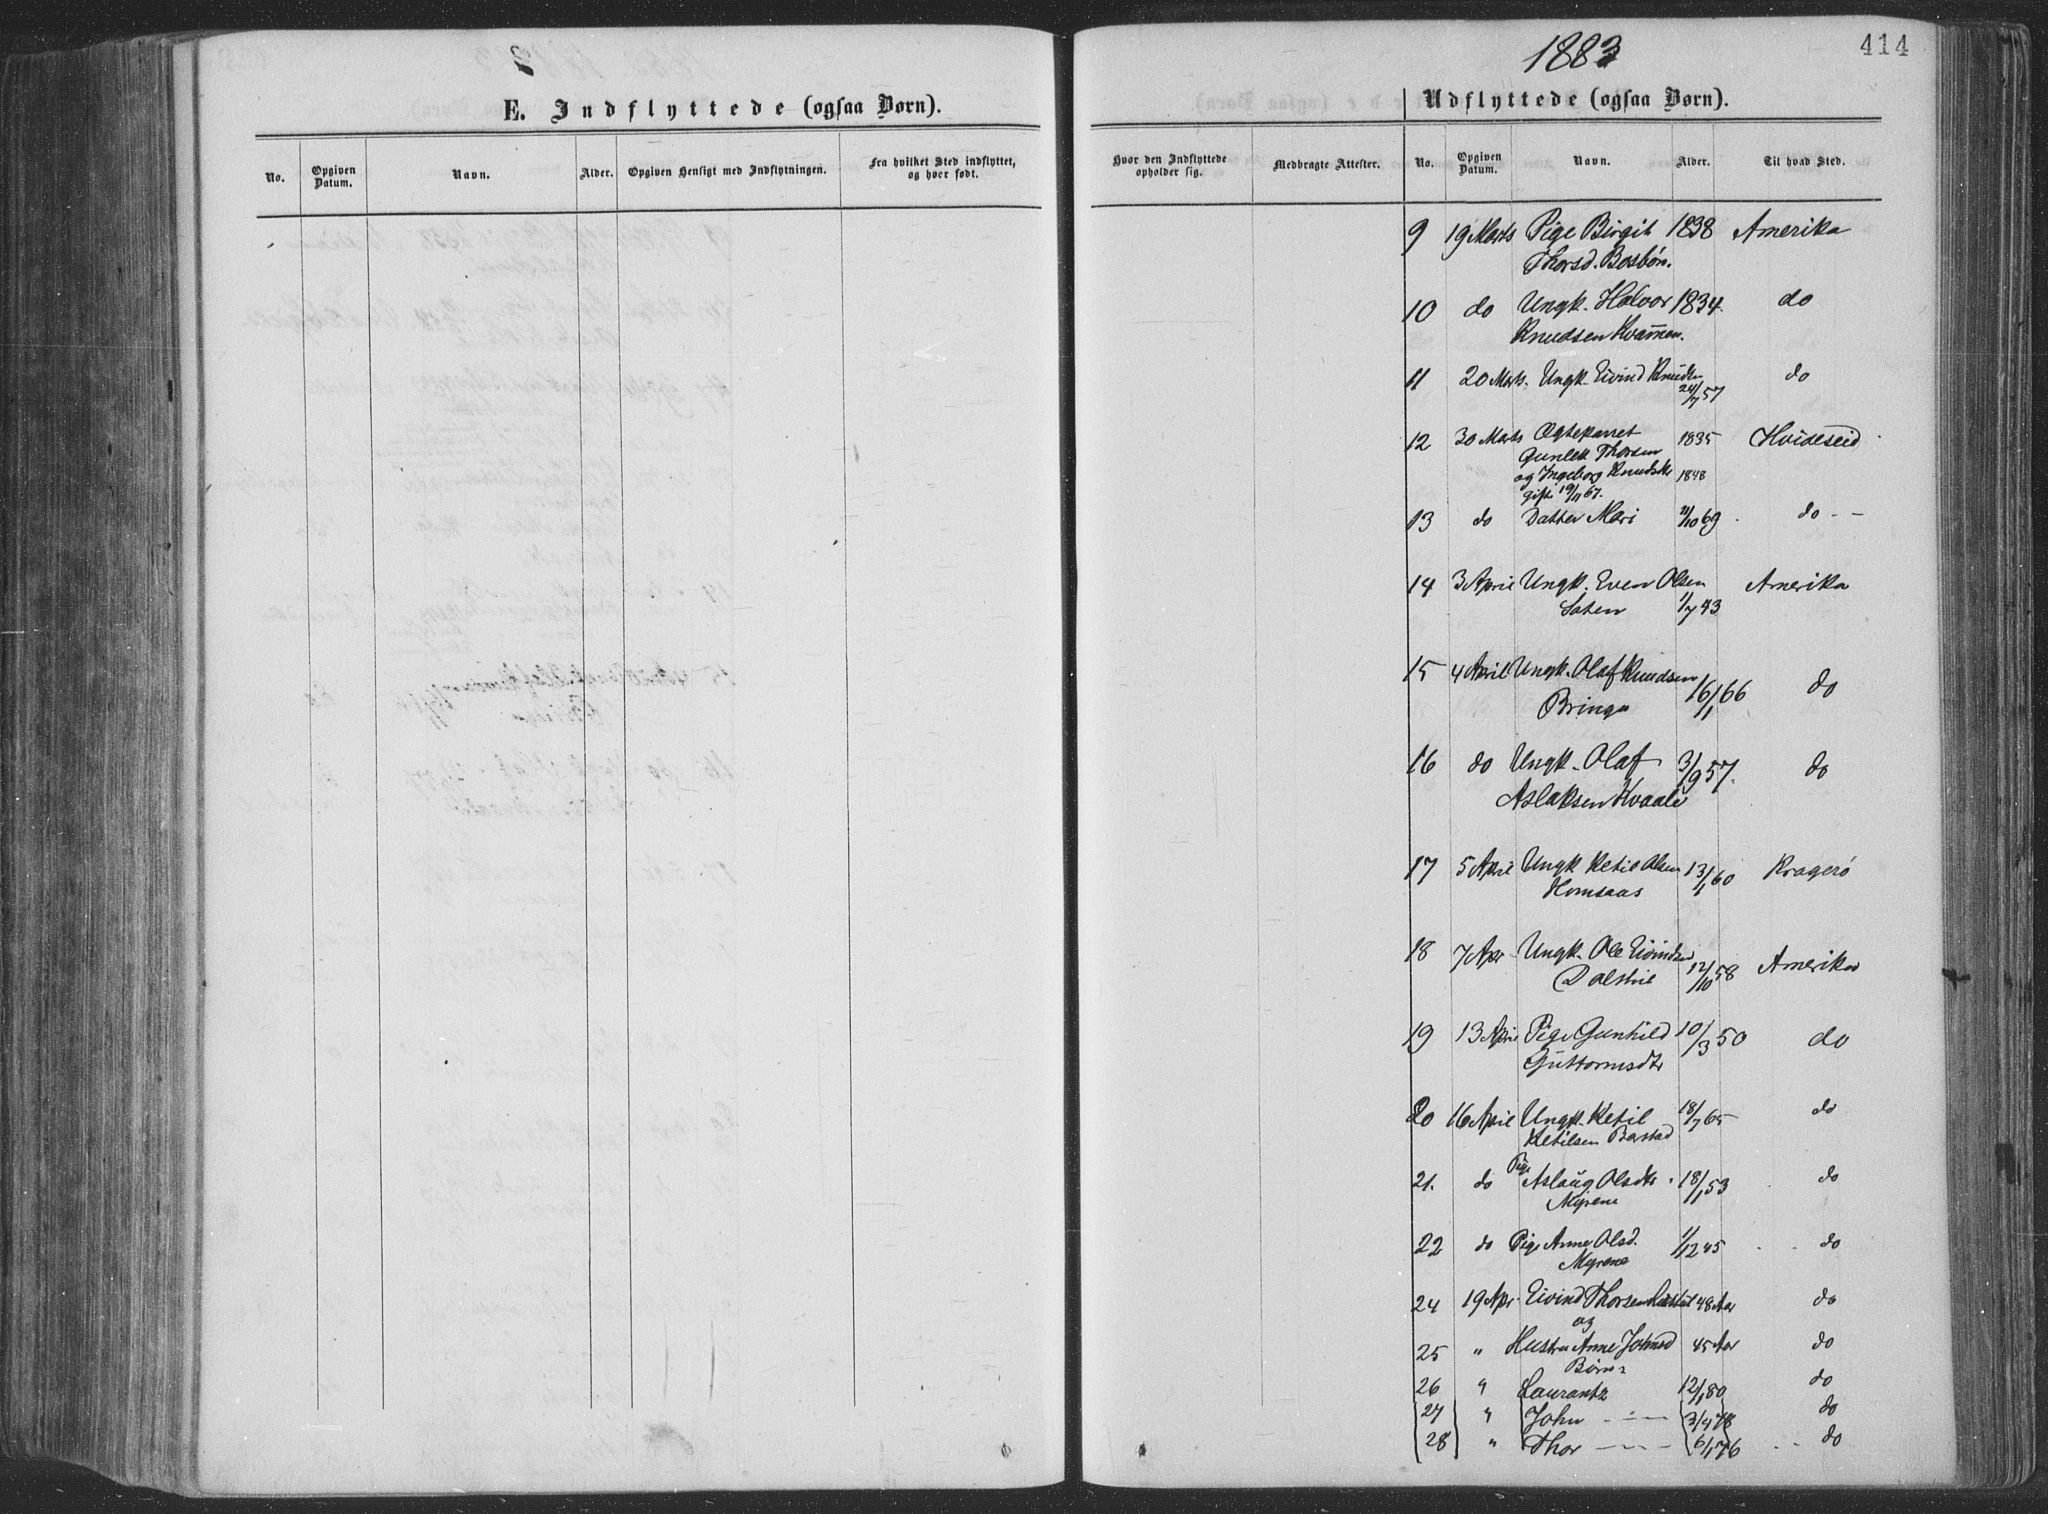 E. Indflyttede (ogsaa Børn).
No. Opgiven Datum. Navn. Alder. Opgiven Hensigt med Indflytningen. Fra hvilket Sted indflyttet, og hvor født.
1883
414
Udflyttede (ogsaa Børn).
Hvor den Indflyttede opholder sig. Medbragte Attester. No. Opgiven Datum. Navn. Alder. Til hvad Sted.
9 19 Marts Pige Birgit 1838 Amerika
Thorsd. Bosbøn.
10 do Ungk. Halvor 1834. do
Knudsen Kvam̅en.
11 20 Marts. Ungk. Eivind Knudsen 24/7 57 do
12 30 Marts Egteparret 1835 Hvideseid
Gunlek Thorsen
og Ingeborg Knudsdtr 1848
gift 19/11 67.
13 do Datter Mari 11/10 69 do
14 3 April Ungk. Even Olsen Amerika
1/7 43
15 4 April Ungk. Olaf Knudsen 16/1 66 do
Bringa
16 do Ungk. Olaf 3/9 57. do
Aslaksen Kvaale
17 5 April Ungk Ketil Olsen 13/1 60 Kragerø
Homsaas
18 7 Apr Ungk. Ole Eivindsen 12/10 58 Amerika
Dalstiel
19 13 April Pige Gunhild 10/3 50 do
Guttormsdtr
20 16 April Ungk. Ketil 18/7 65 do
Ketilsen Barstad
21. do Pige Aslaug Olsdtr 18/1 53 do
Myrene
22 do Pige Anne Olsd. 1/12 45 do
Myrene
24 19 Apr Eivind Thorsen 48 Aar do
og
25 " Hustru Anne Johnsd 45 Aar do
Børn:
26 " Laurantz 12/1 80 do
27 " John 3/4 78 do
28 " Thor 6/1 76 do